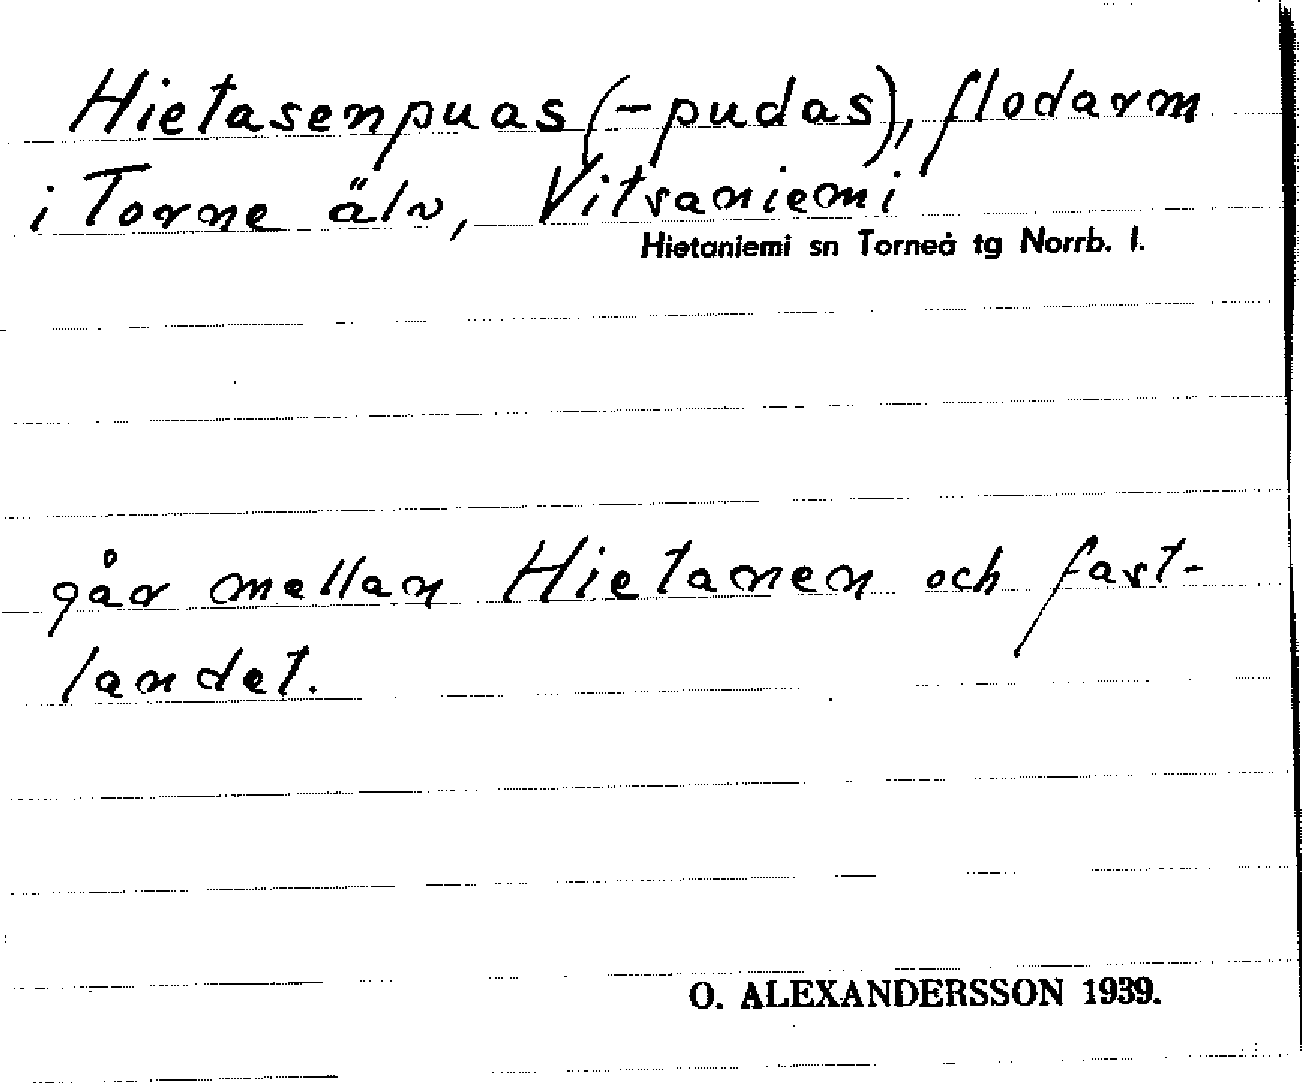 Hietasenpuas (-pudas), flodarm
i Torne älv, Vitsaniemi
Hietaniemi sn Torneå tg Norrb. l.
går mellan Hietanen och fast-
landet.
O. ALEXANDERSSON 1939.